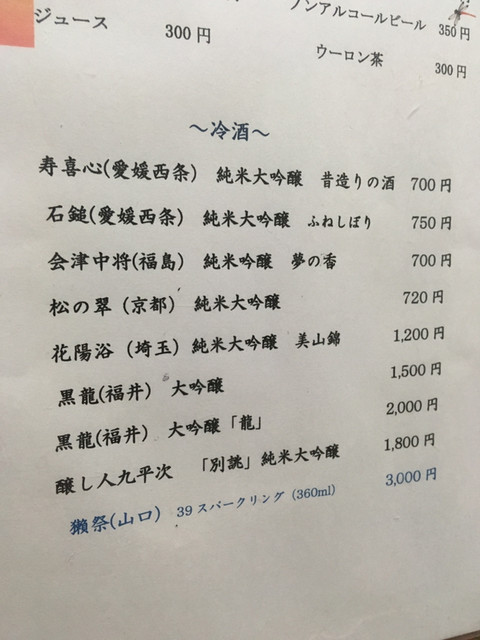 ジュース 300円
ノンアルコールビール 350円
ウーロン茶 300円
～冷酒～
寿喜心(愛媛西条) 純米大吟醸 昔造りの酒 700円
石鎚(愛媛西条) 純米大吟醸 ふねしぼり 750円
会津中将(福島) 純米吟醸 夢の香 700円
松の翠（京都） 純米大吟醸 720円
花陽浴（埼玉）純米大吟醸 美山錦 1,200円
黒龍(福井） 大吟醸 1,500円
黒龍(福井） 大吟醸「龍」 2,000円
醸し人九平次 「別誂」純米大吟醸 1,800円
獺祭(山口） 39スパークリング（360ml） 3,000円